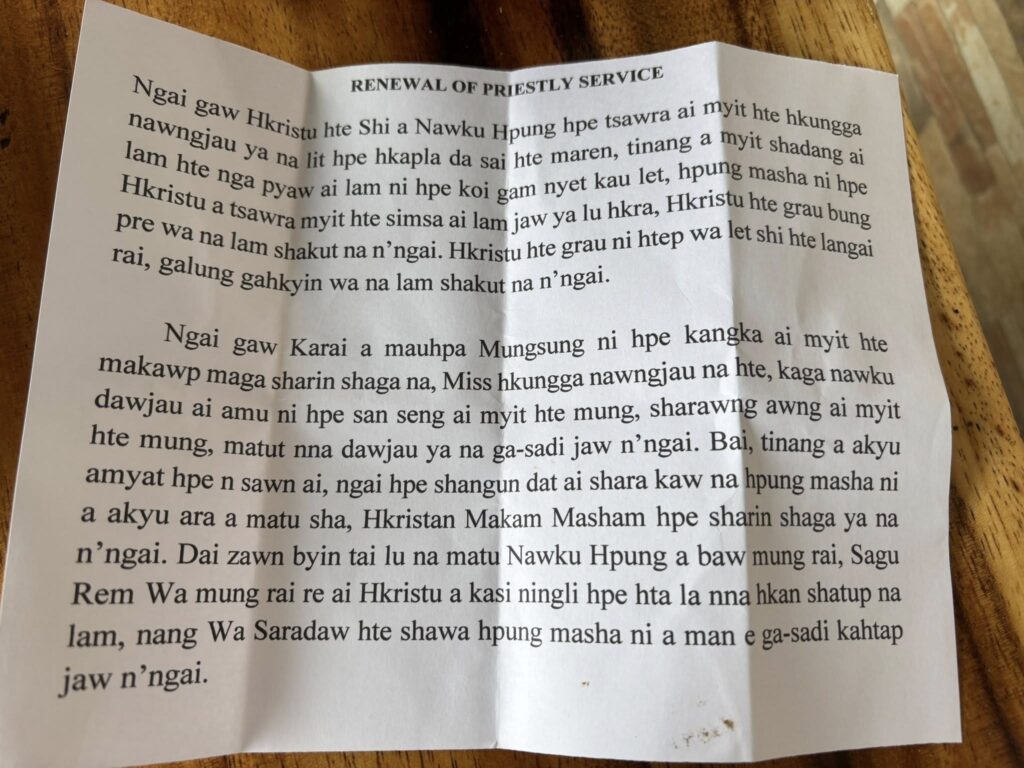 RENEWAL OF PRIESTLY SERVICE
Ngai gaw Hkristu hte Shi a Nawku Hpung hpe tsawra ai myit hte hkungga
nawngjau ya na lit hpe hkapla da sai hte maren, tinang a myit shadang ai
lam hte nga pyaw ai lam ni hpe koi gam nyet kau let, hpung masha ni hpe
Hkristu a tsawra myit hte simsa ai lam jaw ya lu hkra, Hkristu hte grau bung
pre wa na lam shakut na n’ngai. Hkristu hte grau ni htep wa let shi hte langai
rai, galung gahkyin wa na lam shakut na n’ngai.
Ngai gaw Karai a mauhpa Mungsung ni hpe kangka ai myit hte
makawp maga sharin shaga na, Miss hkungga nawngjau na hte, kaga nawku
dawjau ai amu ni hpe san seng ai myit hte mung, sharawng awng ai myit
hte mung, matut nna dawjau ya na ga-sadi jaw n’ngai. Bai, tinang a akyu
amyat hpe n sawn ai, ngai hpe shangun dat ai shara kaw na hpung masha ni
a akyu ara a matu sha, Hkristan Makam Masham hpe sharin shaga ya na
n’ngai. Dai zawn byin tai lu na matu Nawku Hpung a baw mung rai, Sagu
Rem Wa mung rai re ai Hkristu a kasi ningli hpe hta la nna hkan shatup na
lam, nang Wa Saradaw hte shawa hpung masha ni a man e ga-sadi kahtap
jaw n’ngai.